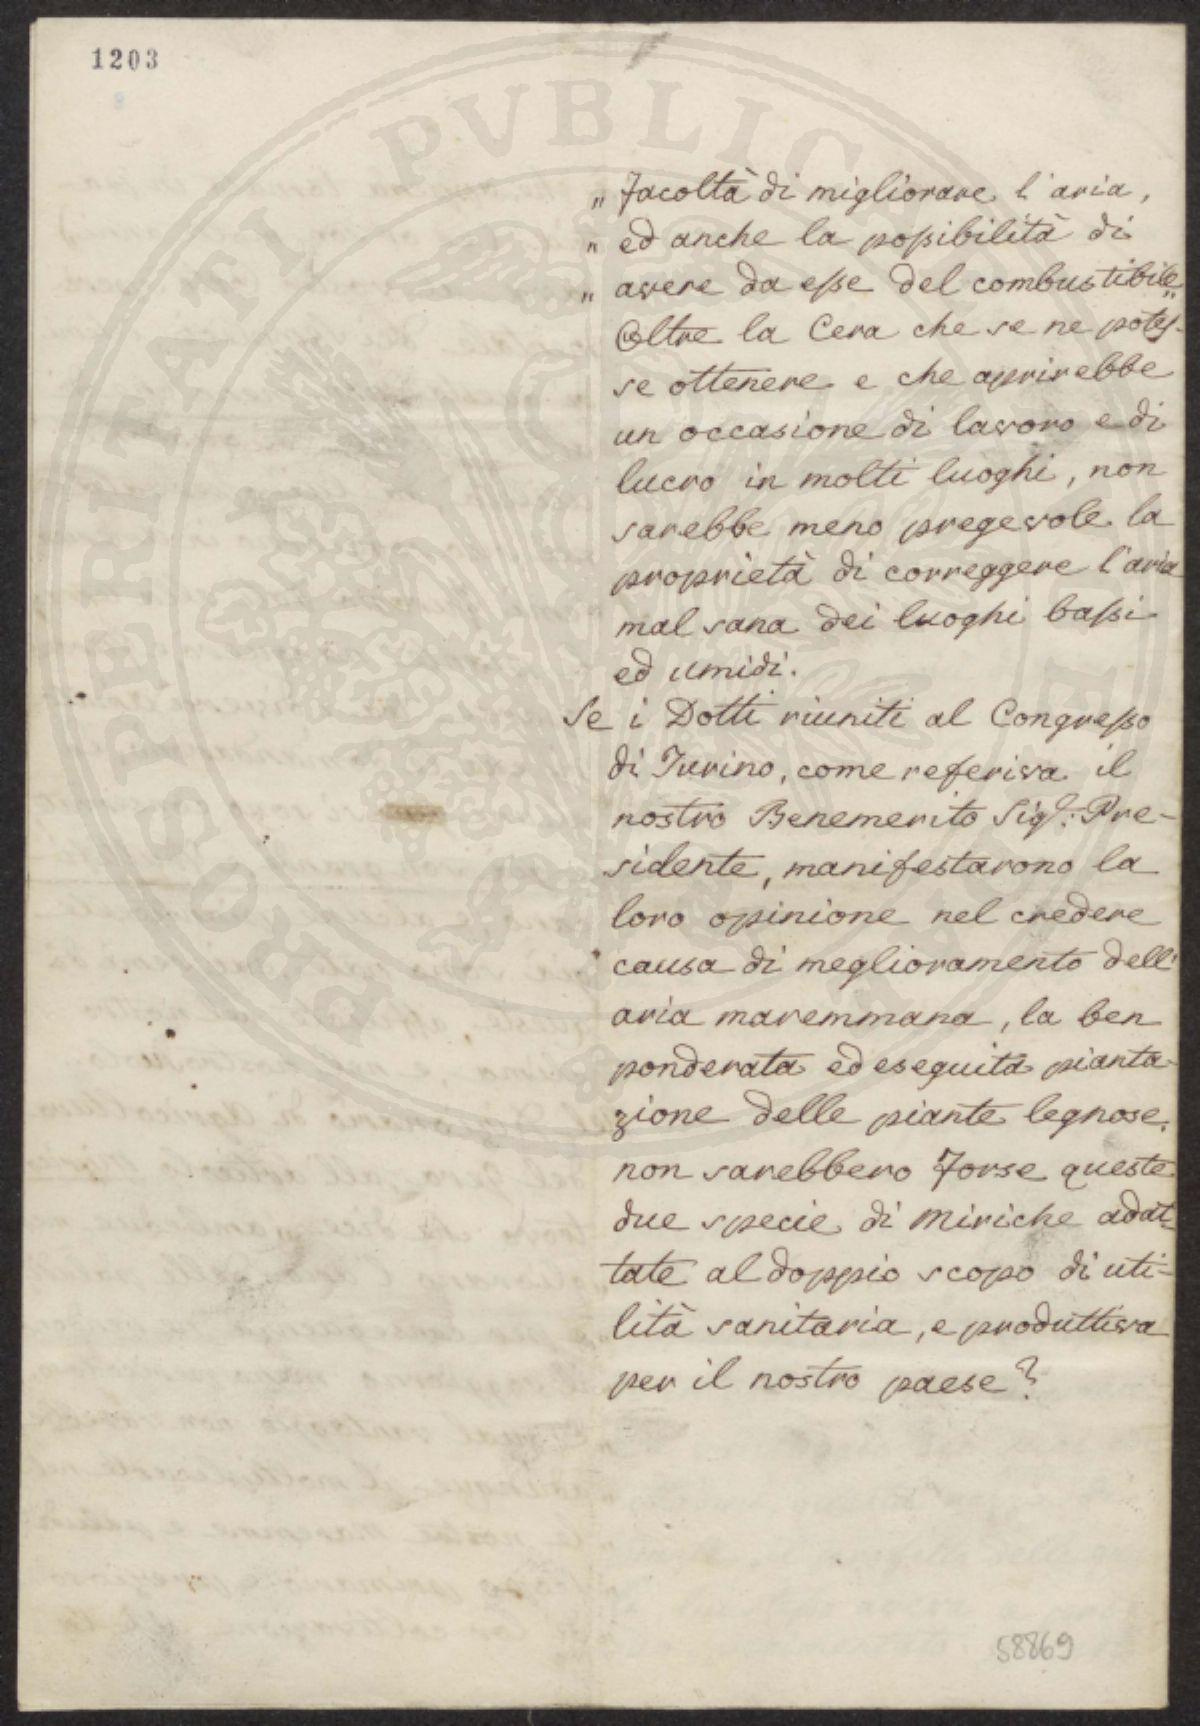 1203
„ facoltà di migliorare l'aria,
„ ed anche la possibilità di
„ avere da esse del combustibile„
Oltre la Cera che se ne potes-
se ottenere e che aprirebbe
un occasione di lavoro e di
lucro in molti luoghi, non
sarebbe meno pregevole la
proprietà di correggere l'aria
mal sana dei luoghi bassi
ed umidi.
Se i Dotti riuniti al Congresso
di Turino, come referiva il
nostro Benemerito Sigr: Pre-
sidente, manifestarono la
loro opinione nel credere
causa di meglioramento dell'
aria maremmana, la ben
ponderata ed eseguita pianta-
zione delle piante legnose.
non sarebbero forse queste
due specie di Miriche adat-
tate al doppio scopo di uti-
lità sanitaria, e produttiva
per il nostro paese?
58869
PROSPERITATI PUBLICAE